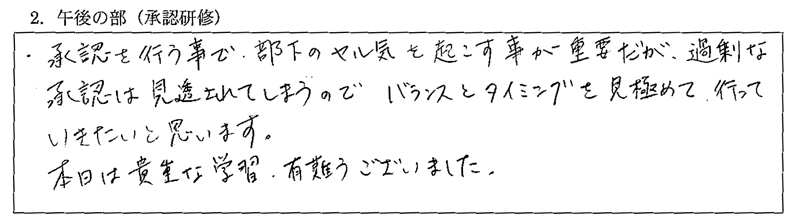 2. 午後の部（承認研修）
・承認を行う事で、部下のヤル気を起こす事が重要だが、過剰な
承認は見透されてしまうので バランスとタイミングを見極めて、行って
いきたいと思います。
本日は貴重な学習、有難うございました。